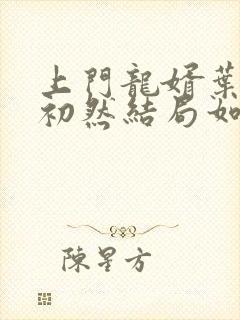 上門龍婿葉
初然結局如
陳星方